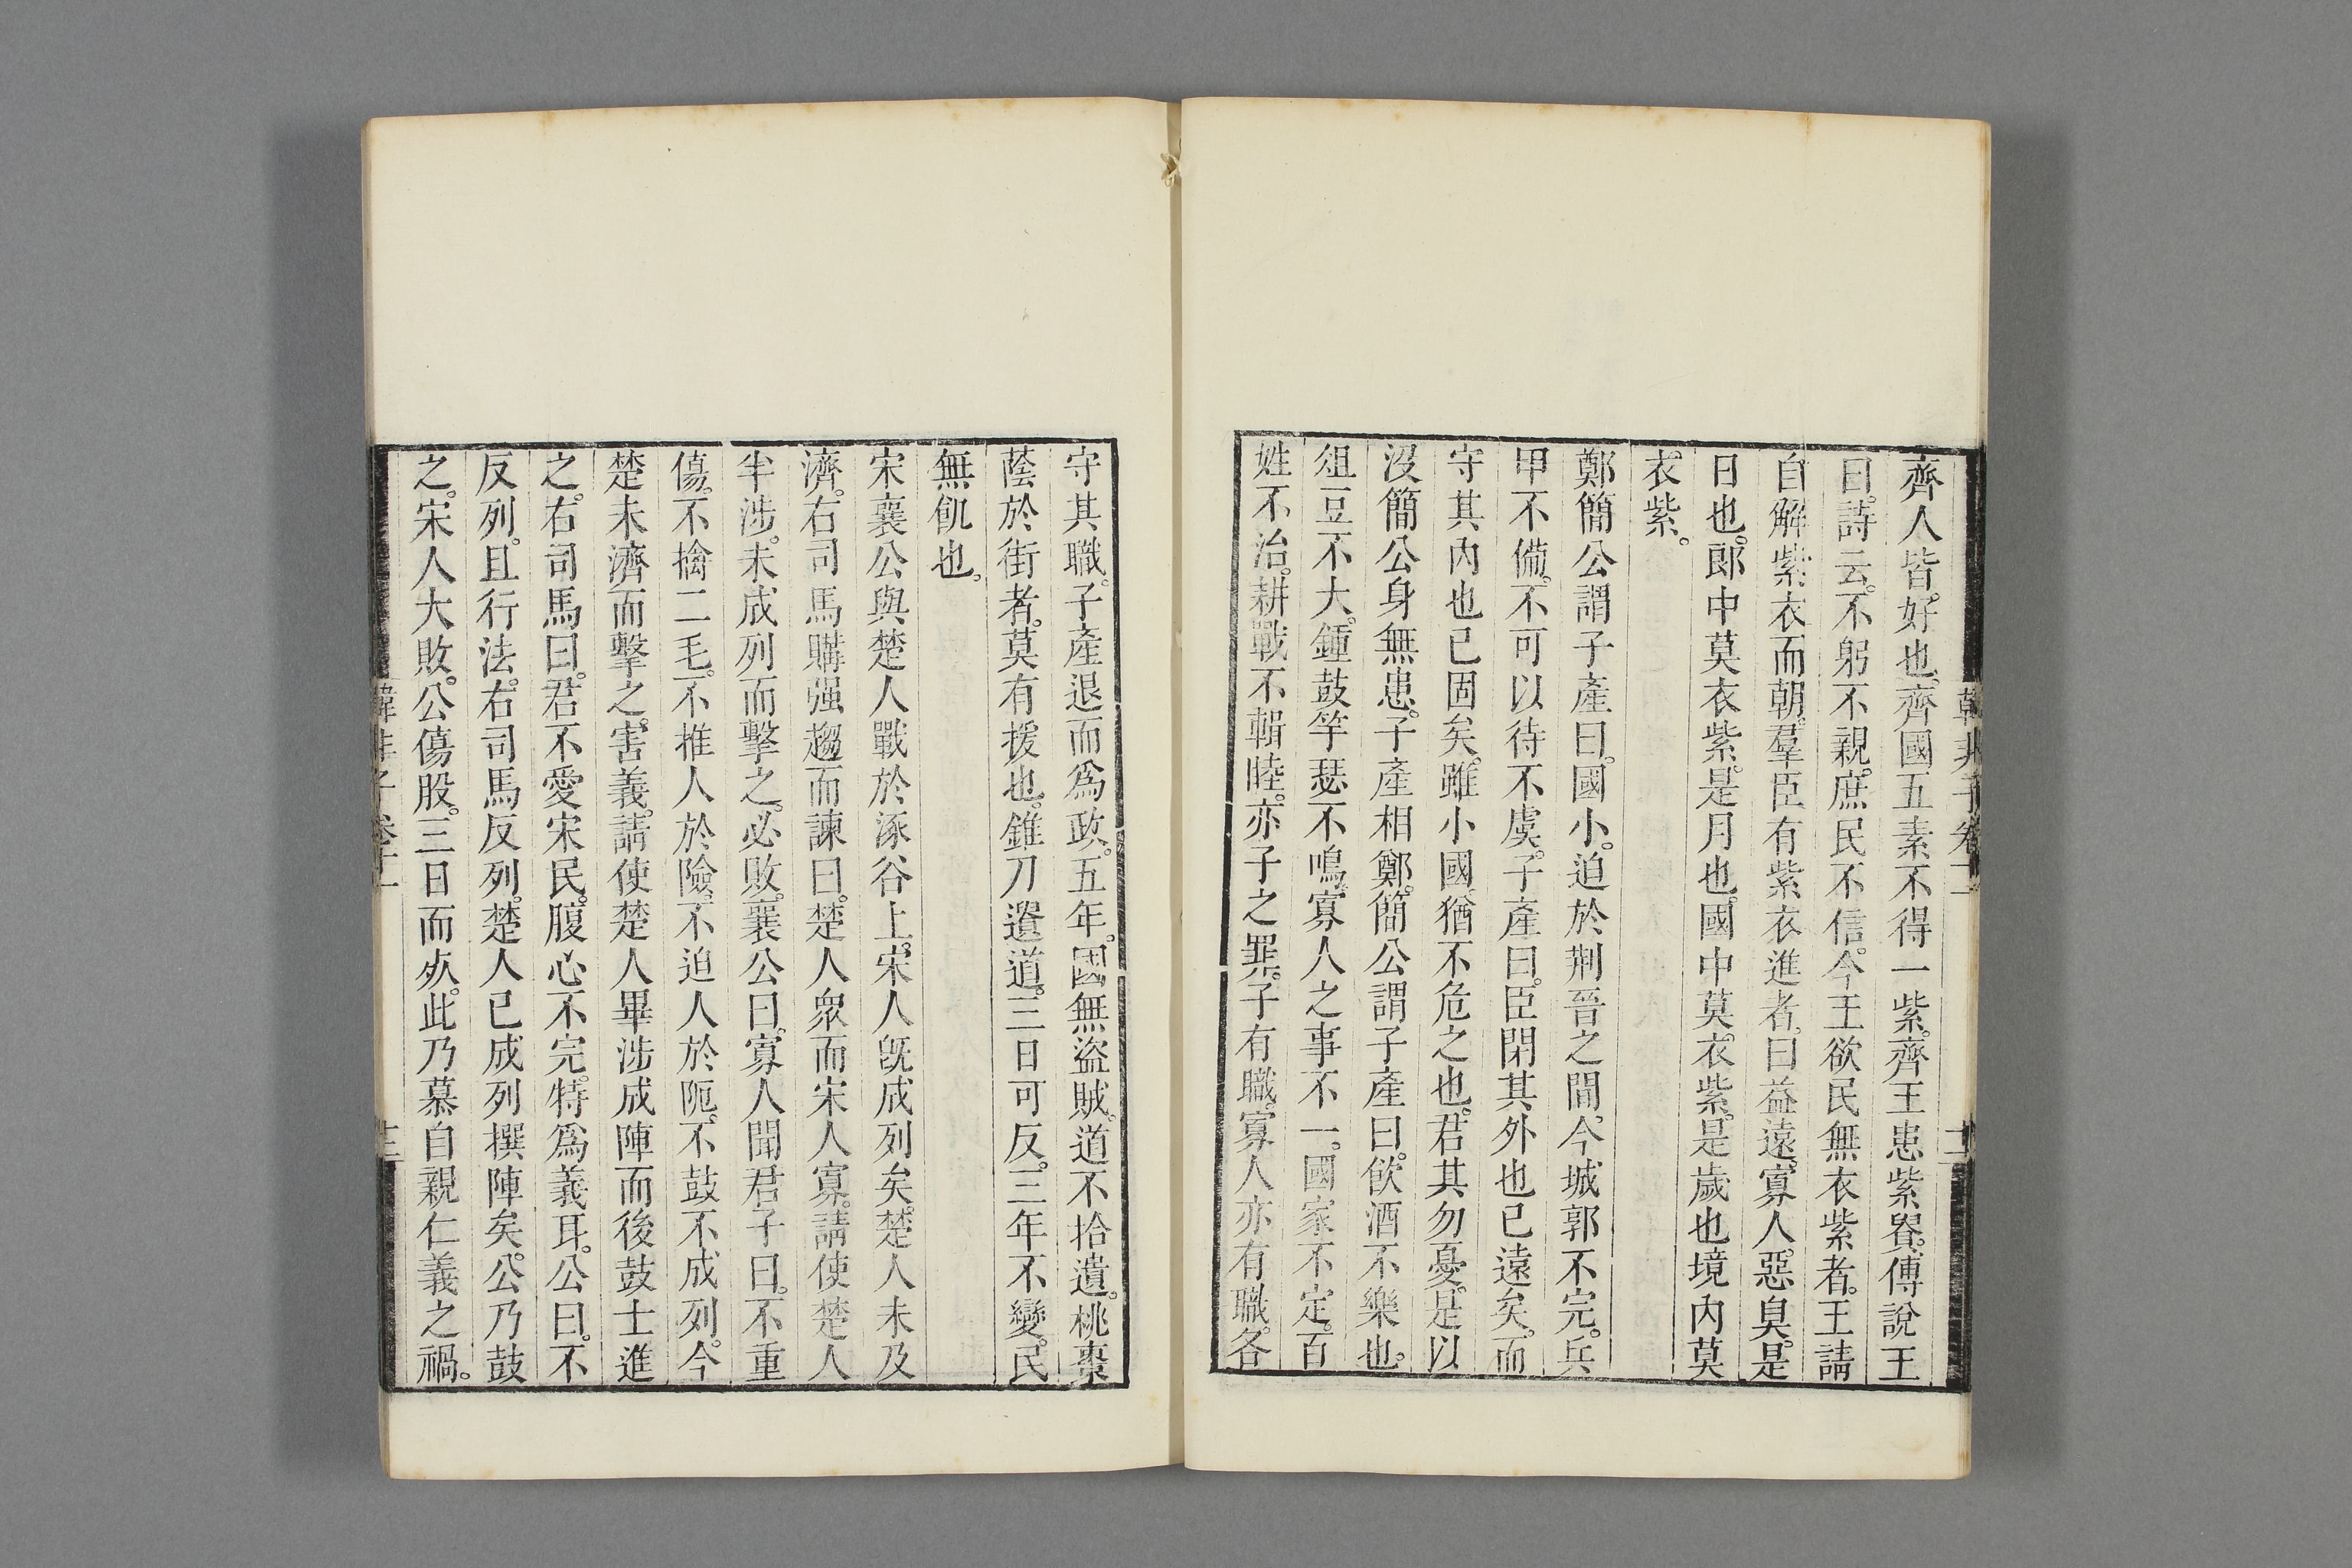 齊人皆。好也。齊國五素不得一紫。齊王患紫貴。傅說王
曰。詩云。不躬不親。庶民不信。今王欲民無衣紫者。王請
自解紫衣而朝。羣臣有紫衣進者。曰益遠。寡人。惡臭。是
日也。郎中莫衣紫。是月也。國中莫。衣紫。是歲也境內莫
衣紫。
鄭簡公謂子產曰。國小。迫於荆晉之間。今城郭不完。兵
甲不備。不可以待不虞。子產曰。臣閉其外也已遠矣。而
守其內也已固矣。雖小國。猶不危之也。君其勿憂。是以
沒簡公身無患。子產相鄭。簡公謂子產曰。飲酒不樂也。
俎豆不大。鍾鼓竽瑟不鳴。寡人之事不一。國家不定。百
姓不治。耕戰不輯睦。亦子之罪。子有職。寡人亦有職。各
韓非子卷十一
守其職。子產退而為政。五年。國無盜賊。道不拾遺。桃棗
蔭於街者。莫有援也。錐刀遺道。三日可反。三年不變。民
無飢也。
宋襄公與楚人戰於涿谷上。宋人既成列矣。楚人未及
濟。右司馬購强趨而諫曰。楚人衆而宋人寡。請使楚人
半涉。未成列而擊之。必敗。襄公曰。寡人聞君子曰。不重
傷。不擒二毛。不推人於險。不迫人於阨。不鼓不成列。今
楚未濟而擊之。害義。請使楚人畢涉成陣而後鼓士進
之。右司馬曰。君不愛宋民。腹心不完。特為義耳。公曰。不
反列。且行法。右司馬反列。楚人已成列撰陣矣。公乃鼓
之。宋人大敗。公傷股。三日而死。此乃慕自親仁義之禍。